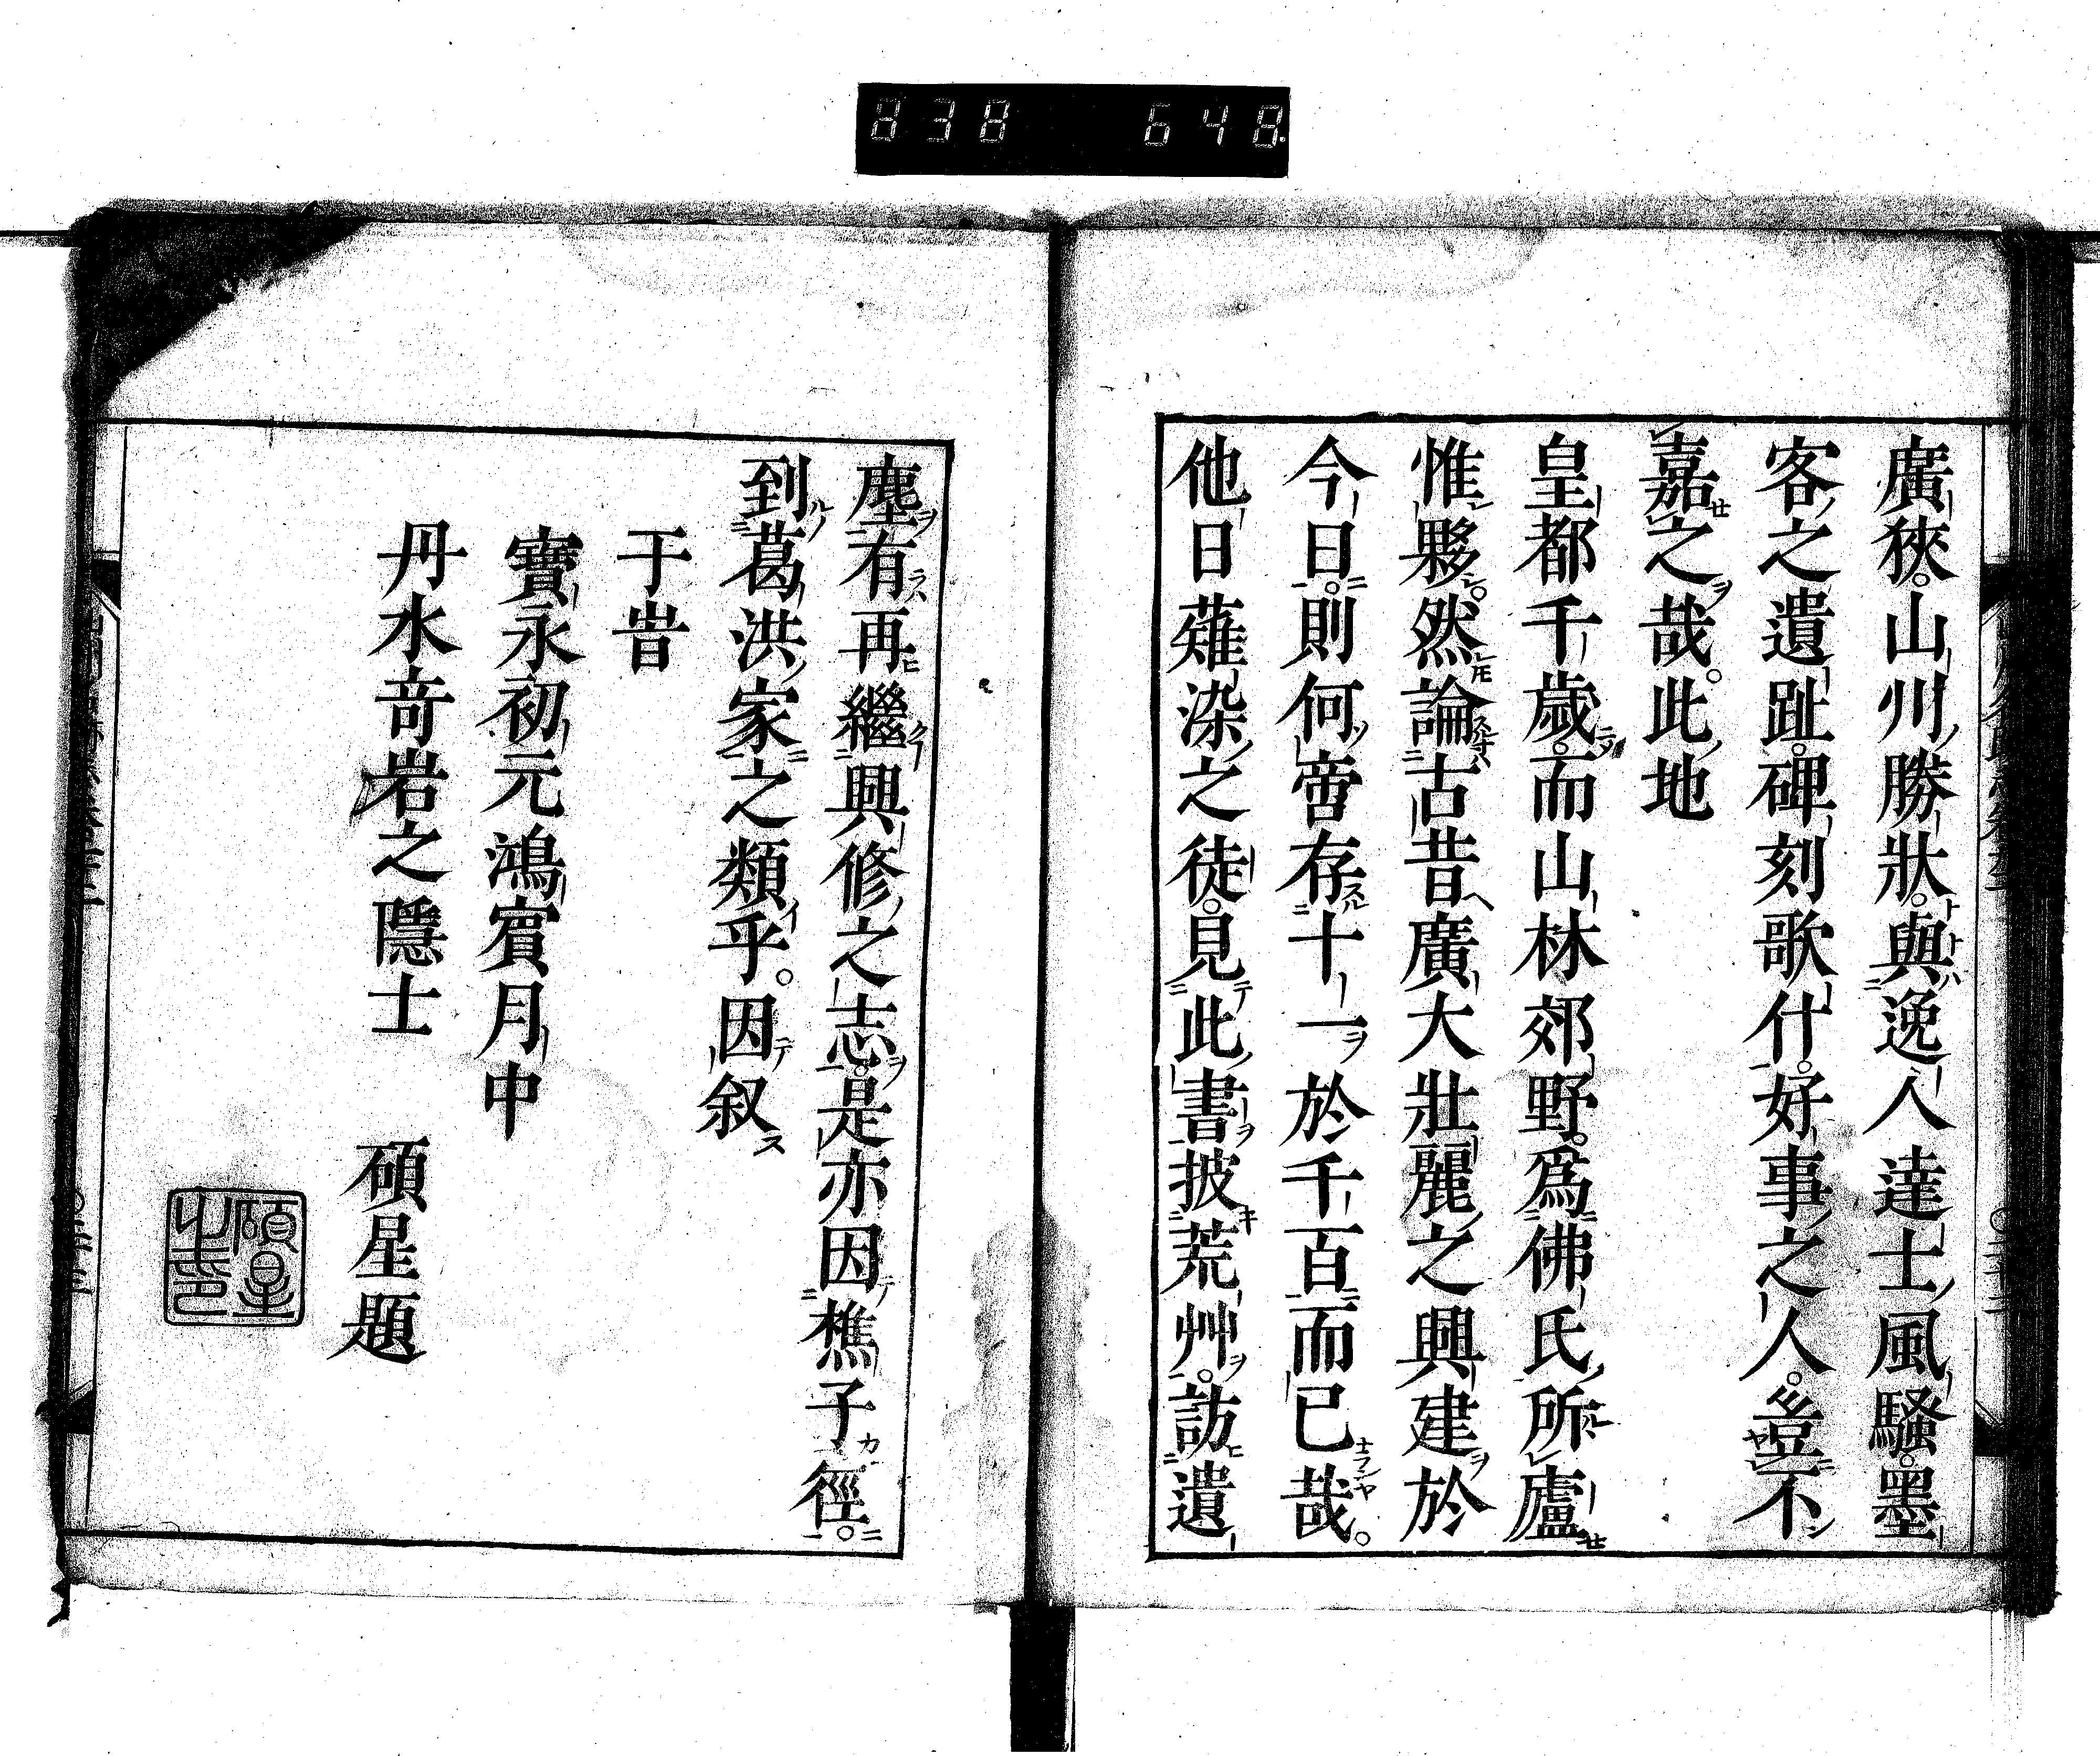 838 648
廣狹。山川勝狀。與逸人達士風騷。墨
客之遺趾。碑刻歌什。好事之人。豈不
嘉之哉。此地
皇都千歲。而山林郊野。爲佛氏所廬
惟夥。然論古昔廣大壯麗之興建於
今日。則何啻存十一於千百而已哉。
他日薙染之徒。見此書披荒艸。訪遺
塵有再繼興修之志。是亦因樵子徑。
到葛洪家之類乎。因叙
于旹
寶永初元鴻賓月中
丹水奇岩之隱士 碩星題
碩星之印